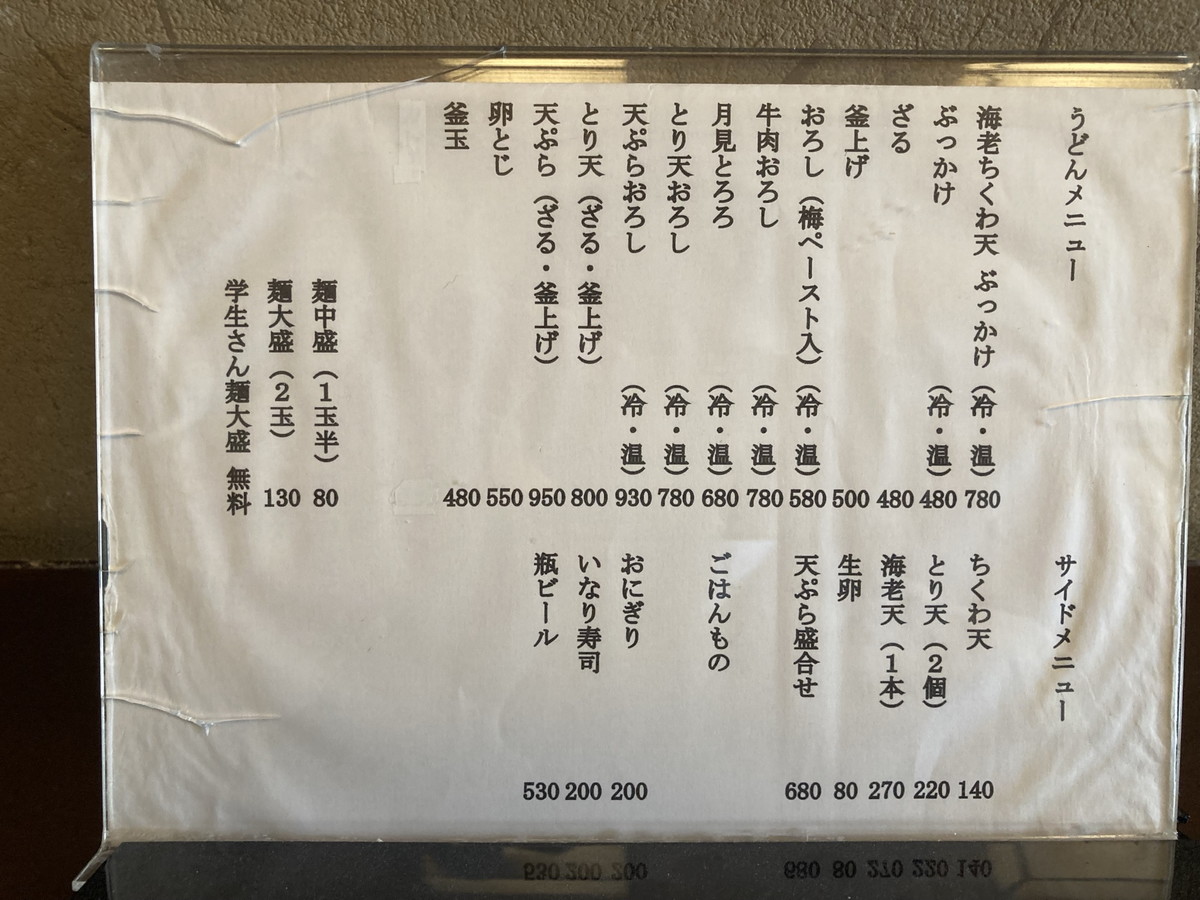 うどんメニュー
海老ちくわ天 ぶっかけ（冷・温）780
ぶっかけ（冷・温）480
ざる 480
釜上げ 500
おろし（梅ペースト入）（冷・温）580
牛肉おろし（冷・温）780
月見とろろ（冷・温）680
とり天おろし（冷・温）780
天ぷらおろし（冷・温）930
とり天（ざる・釜上げ）800
天ぷら（ざる・釜上げ）950
卵とじ 550
釜玉 480
麺中盛（１玉半）80
麺大盛（２玉）130
学生さん麺大盛 無料
サイドメニュー
ちくわ天 140
とり天（２個）220
海老天（１本）270
生卵 80
天ぷら盛合せ 680
ごはんもの
おにぎり 200
いなり寿司 200
瓶ビール 530